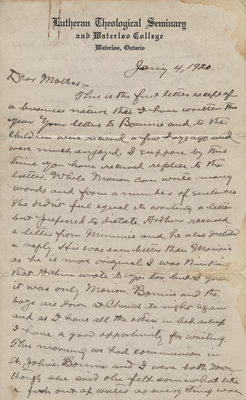 Lutheran Theological Seminary
and Waterloo College
Waterloo, Ontario
Jany 4, 1920.
Dear Mother:-
This is the first letter except of
a business nature that I have written this
year. Your letters to Bonnie and to the
children were received a few days ago and
were much enjoyed. I suppose by this
time you have received replies to the
latter. While Marion can write many
words and form a number of sentences
she didn't feel equal to writing a letter
but preferred to dictate. Arthur received
a letter from Minnie and he also dictated
a reply. His was even better than Marion's
as he is more original. I was thinking
that Arthur wrote to you too, but I guess
it was only Marion. Bonnie and the
boys are down at Church to night again
and as I have all the others in bed asleep
I have a good opportunity for writing.
This morning we had communion in
St. John's. Bonnie and I were both there
though she said she felt somewhat like
a fish out of water as everything was